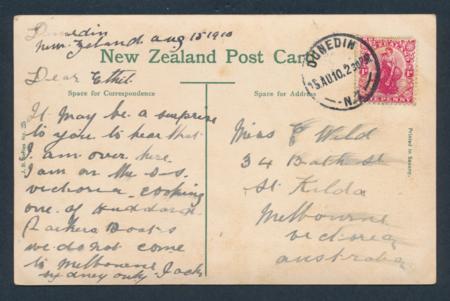 Dunedin
New. Zeland. aug 15 1910
New Zealand Post Card
Dear Ethel.
Space for Correspondence
Space for Address
DUNEDIN
15 AU 10. 2 30 PM
N.Z
PENNY
It may be a surprise
to you to hear that
I am over here
I am on the S-S.
victoria. cooking
one. of Huddard.
Parkers Boats
we do not come
to Melbourne
sydney only Jack
Miss E Wild
34 Bath St
St. Kilda
Melbourne
victoria
australia
Printed in Saxony.